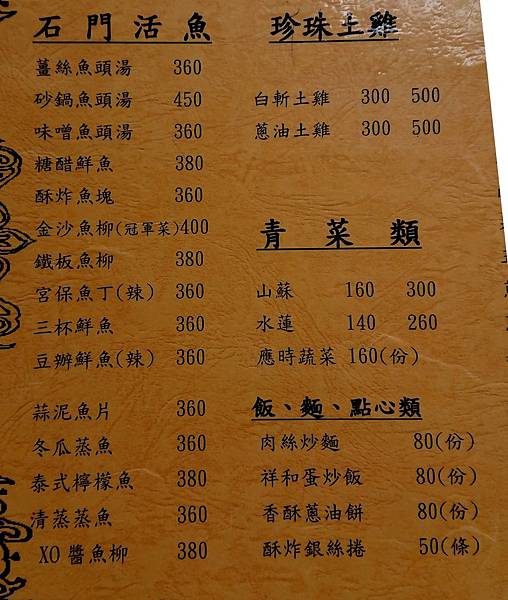 石門活魚
薑絲魚頭湯 360
砂鍋魚頭湯 450
味噌魚頭湯 360
糖醋鮮魚 380
酥炸魚塊 360
金沙魚柳(冠軍菜)400
鐵板魚柳 380
宮保魚丁(辣) 360
三杯鮮魚 360
豆瓣鮮魚(辣) 360
蒜泥魚片 360
冬瓜蒸魚 360
泰式檸檬魚 380
清蒸蒸魚 360
XO醬魚柳 380
珍珠土雞
白斬土雞 300 500
蔥油土雞 300 500
青菜類
山蘇 160 300
水蓮 140 260
應時蔬菜 160(份)
飯、麵、點心類
肉絲炒麵 80(份)
祥和蛋炒飯 80(份)
香酥蔥油餅 80(份)
酥炸銀絲捲 50(條)